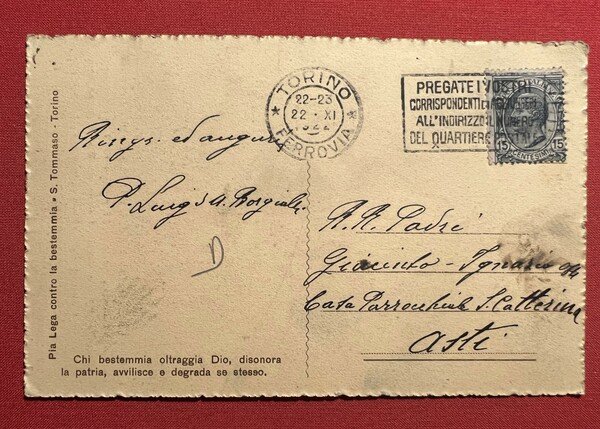 TORINO
22-23
22 · XI
FERROVIA
PREGATE I VOSTRI
CORRISPONDENTI
ALL'INDIRIZZO IL NUMERO
DEL QUARTIERE
15 CENTESIMI 15
Ringr. ed auguri
P. Luigi
D
R.R. Padri
Giacinto - Ignazio
Casa Parrocchiale S. Catterina
Asti
Pia Lega contro la bestemmia • S. Tommaso - Torino
Chi bestemmia oltraggia Dio, disonora
la patria, avvilisce e degrada se stesso.